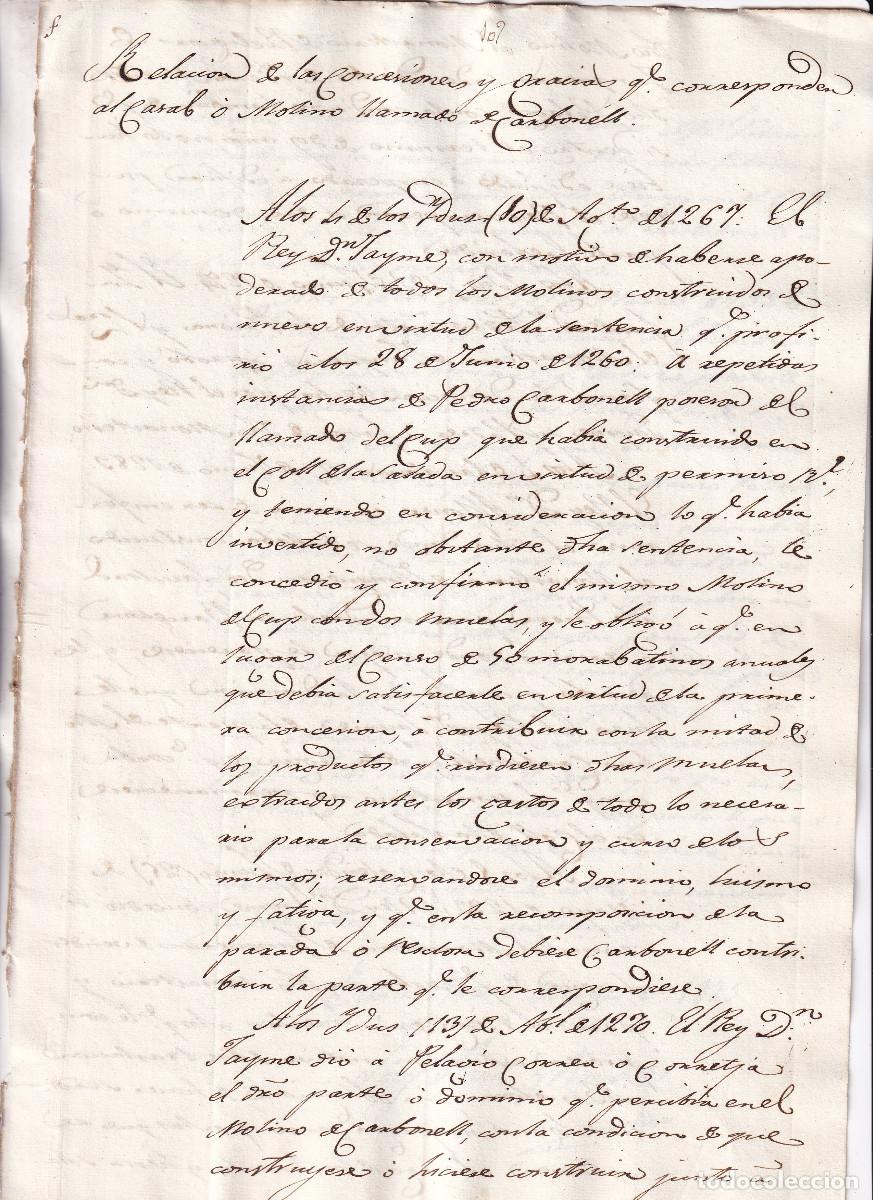 Relacion de las Concesiones y Gracias q.e corresponden
al Casal ò Molino llamado de Carbonéll.
A los 4 de los Ydus (10) de Ag.to de 1267. El
Rey D.n Jayme, con motivo de haberse apo-
derado de todos los Molinos construidos de
nuevo en virtud de la sentencia q.e profi-
rió à los 28 de Junio de 1260: à repetidas
instancias de Pedro Carbonell poseesor del
llamado del Cup que habia construido en
el Coll de la Salada en virtud de permiso R.l,
y teniendo en consideracion lo q.e habia
invertido, no obstante dha sentencia, le
concedió y confirmó el mismo Molino
del Cup con dos muelas, y le obligó à q.e en
lugar del Censo de 50 morabatinos anuales
que debia satisfacerle en virtud de la prime-
ra concesion, à contribuir con la mitad de
los productos q.e rindiesen dhas muelas,
extraidos antes los gastos de todo lo necesa-
rio para la conservacion y curso de los
mismos; reservandose el dominio, luismo
y fatiga, y q.e en la recomposicion de la
parada ò resclosa debiese Carbonell contri-
buir la parte q.e le correspondiese.
A los Ydus (13) de Abl. de 1270. El Rey D.n
Jayme dió à Pelagio Correa ò Corretja
el dró parte ò dominio q.e percibia en el
Molino de Carbonell, con la condicion de que
construyese ò hiciese construir junto à
todocoleccion